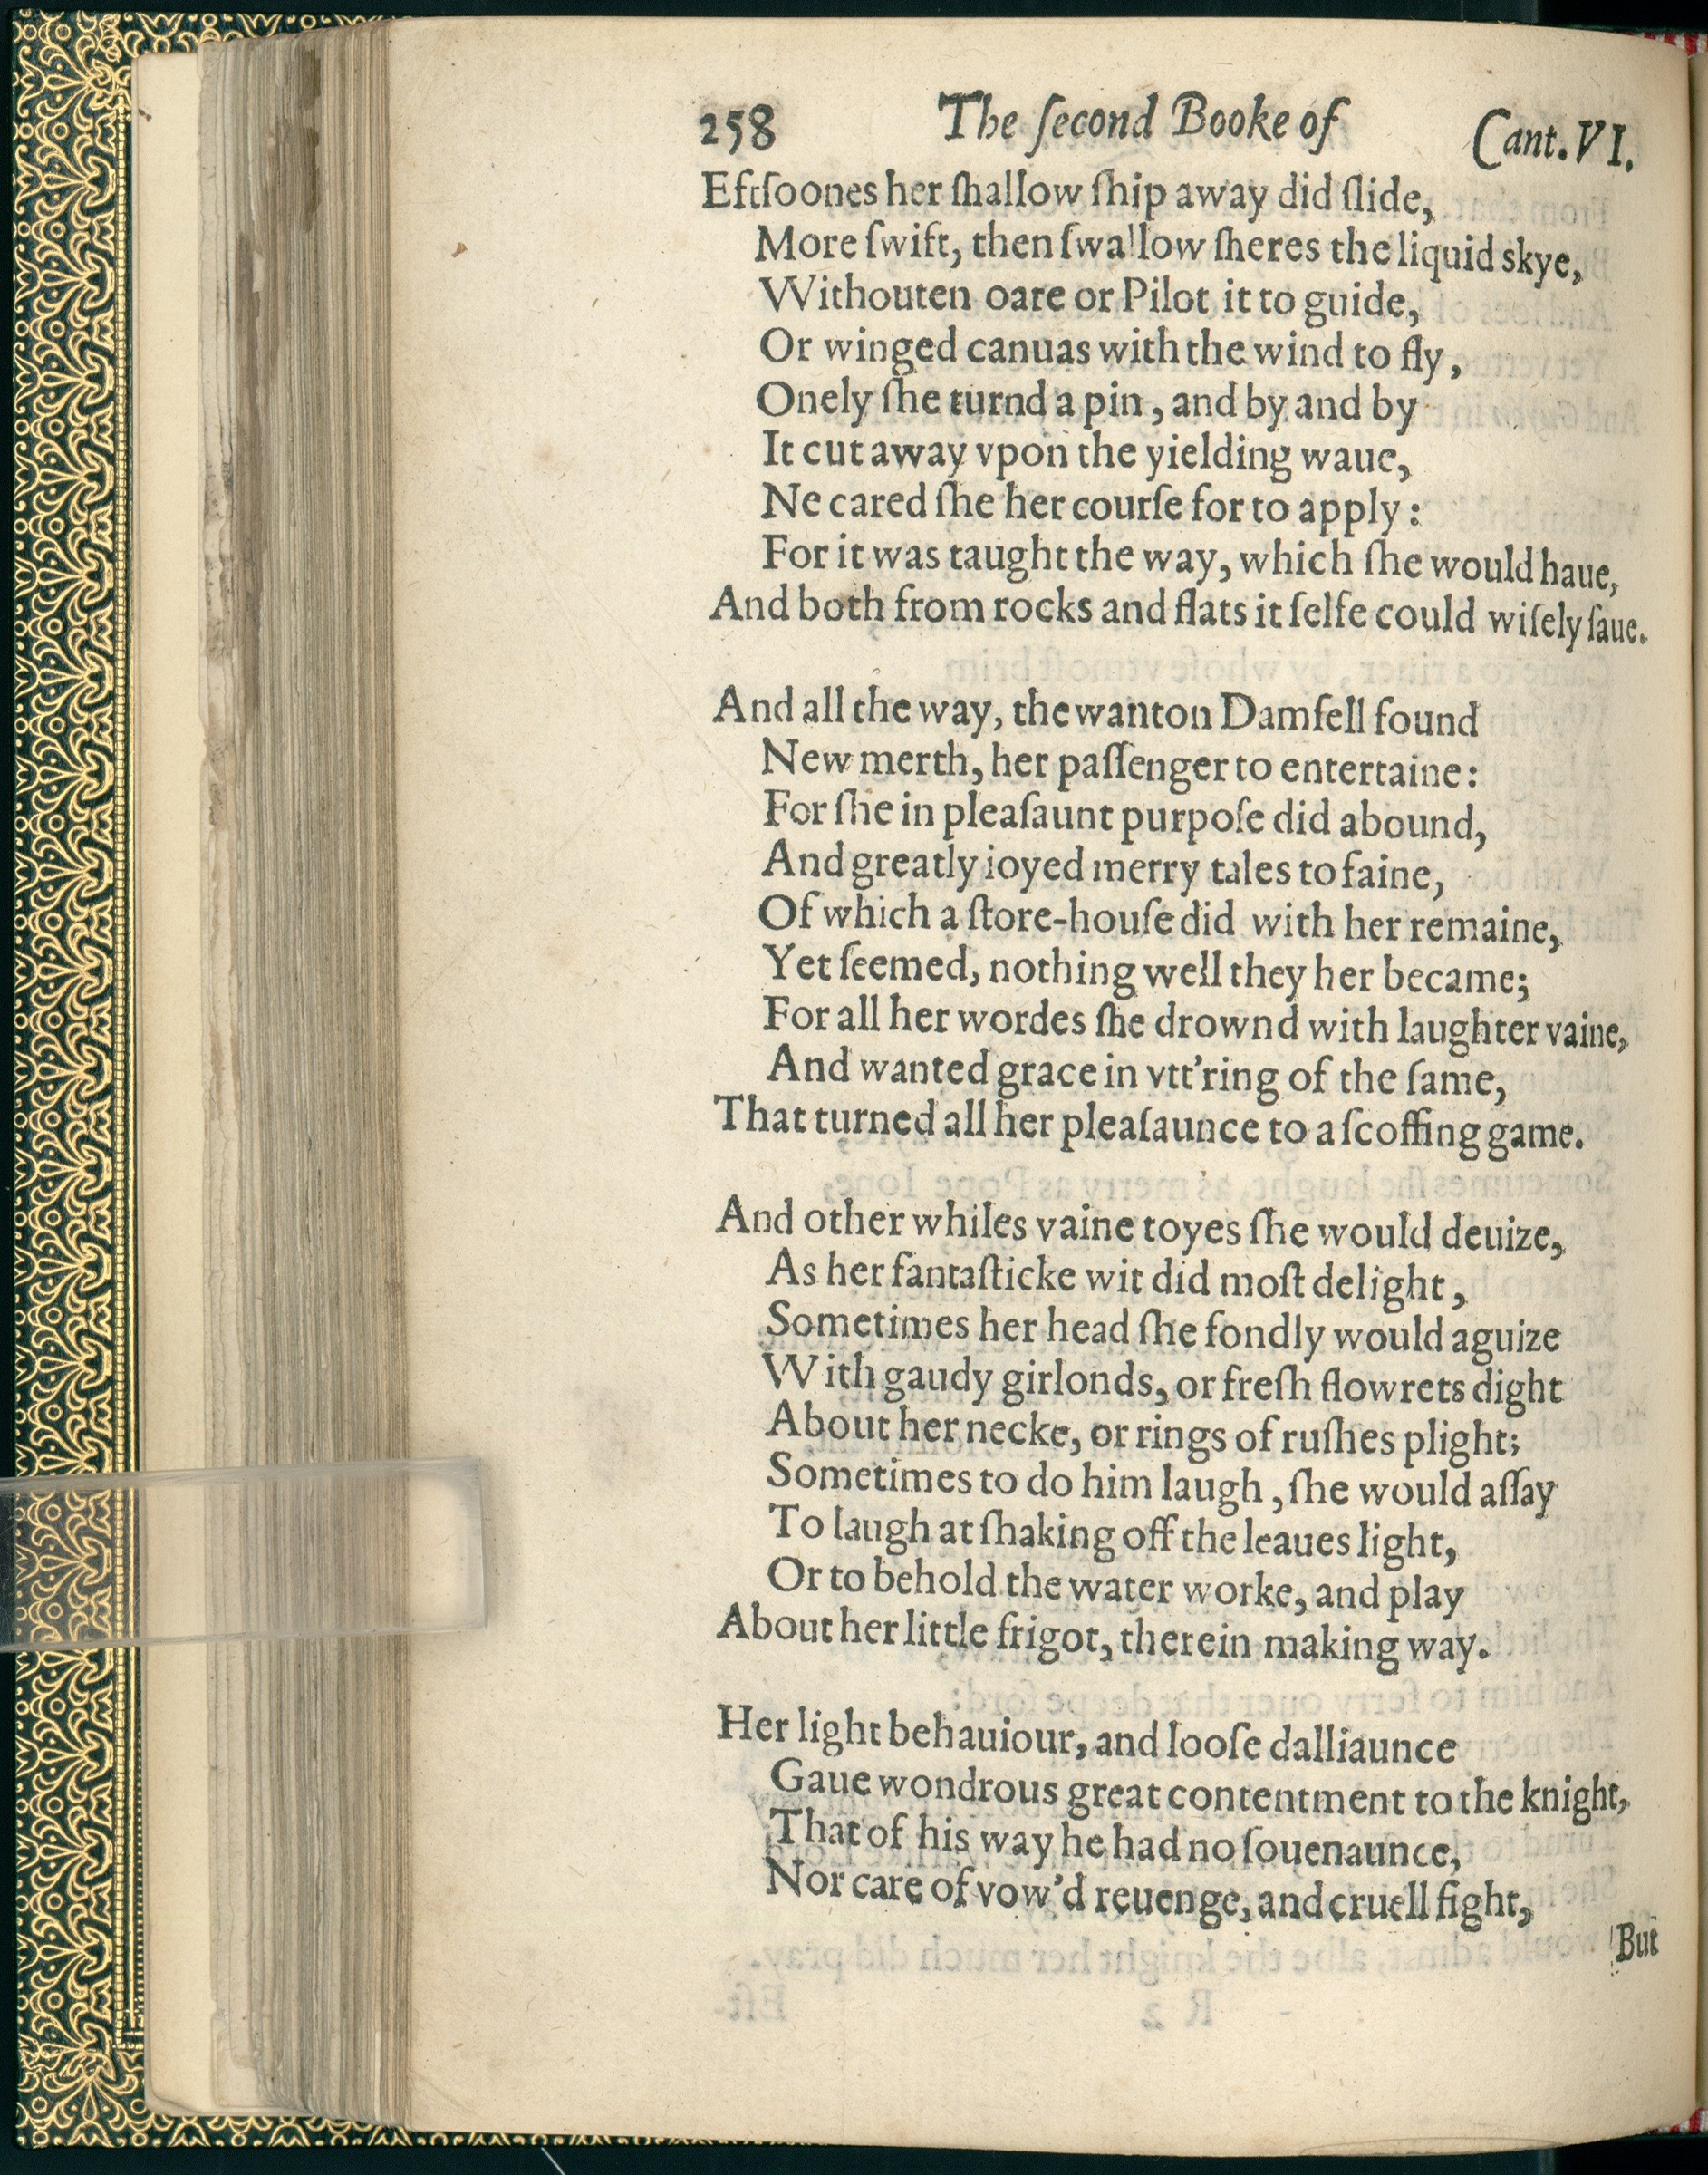 258 The ſecond Booke of Cant. VI.
Eftſoones her ſhallow ſhip away did ſlide,
More ſwift, then ſwallow ſheres the liquid skye,
Withouten oare or Pilot it to guide,
Or winged canuas with the wind to fly,
Onely ſhe turnd a pin, and by and by
It cut away vpon the yielding waue,
Ne cared ſhe her courſe for to apply:
For it was taught the way, which ſhe would haue,
And both from rocks and flats it ſelfe could wiſely ſaue.
And all the way, the wanton Damſell found
New merth, her paſſenger to entertaine:
For ſhe in pleaſaunt purpoſe did abound,
And greatly ioyed merry tales to faine,
Of which a ſtore-houſe did with her remaine,
Yet ſeemed, nothing well they her became;
For all her wordes ſhe drownd with laughter vaine,
And wanted grace in vtt'ring of the ſame,
That turned all her pleaſaunce to a ſcoffing game.
And other whiles vaine toyes ſhe would deuize,
As her fantaſticke wit did moſt delight,
Sometimes her head ſhe fondly would aguize
With gaudy girlonds, or freſh flowrets dight
About her necke, or rings of ruſhes plight;
Sometimes to do him laugh, ſhe would aſſay
To laugh at ſhaking off the leaues light,
Or to behold the water worke, and play
About her little frigot, therein making way.
Her light behauiour, and looſe dalliaunce
Gaue wondrous great contentment to the knight,
That of his way he had no ſouenaunce,
Nor care of vow'd reuenge, and cruell fight,
But